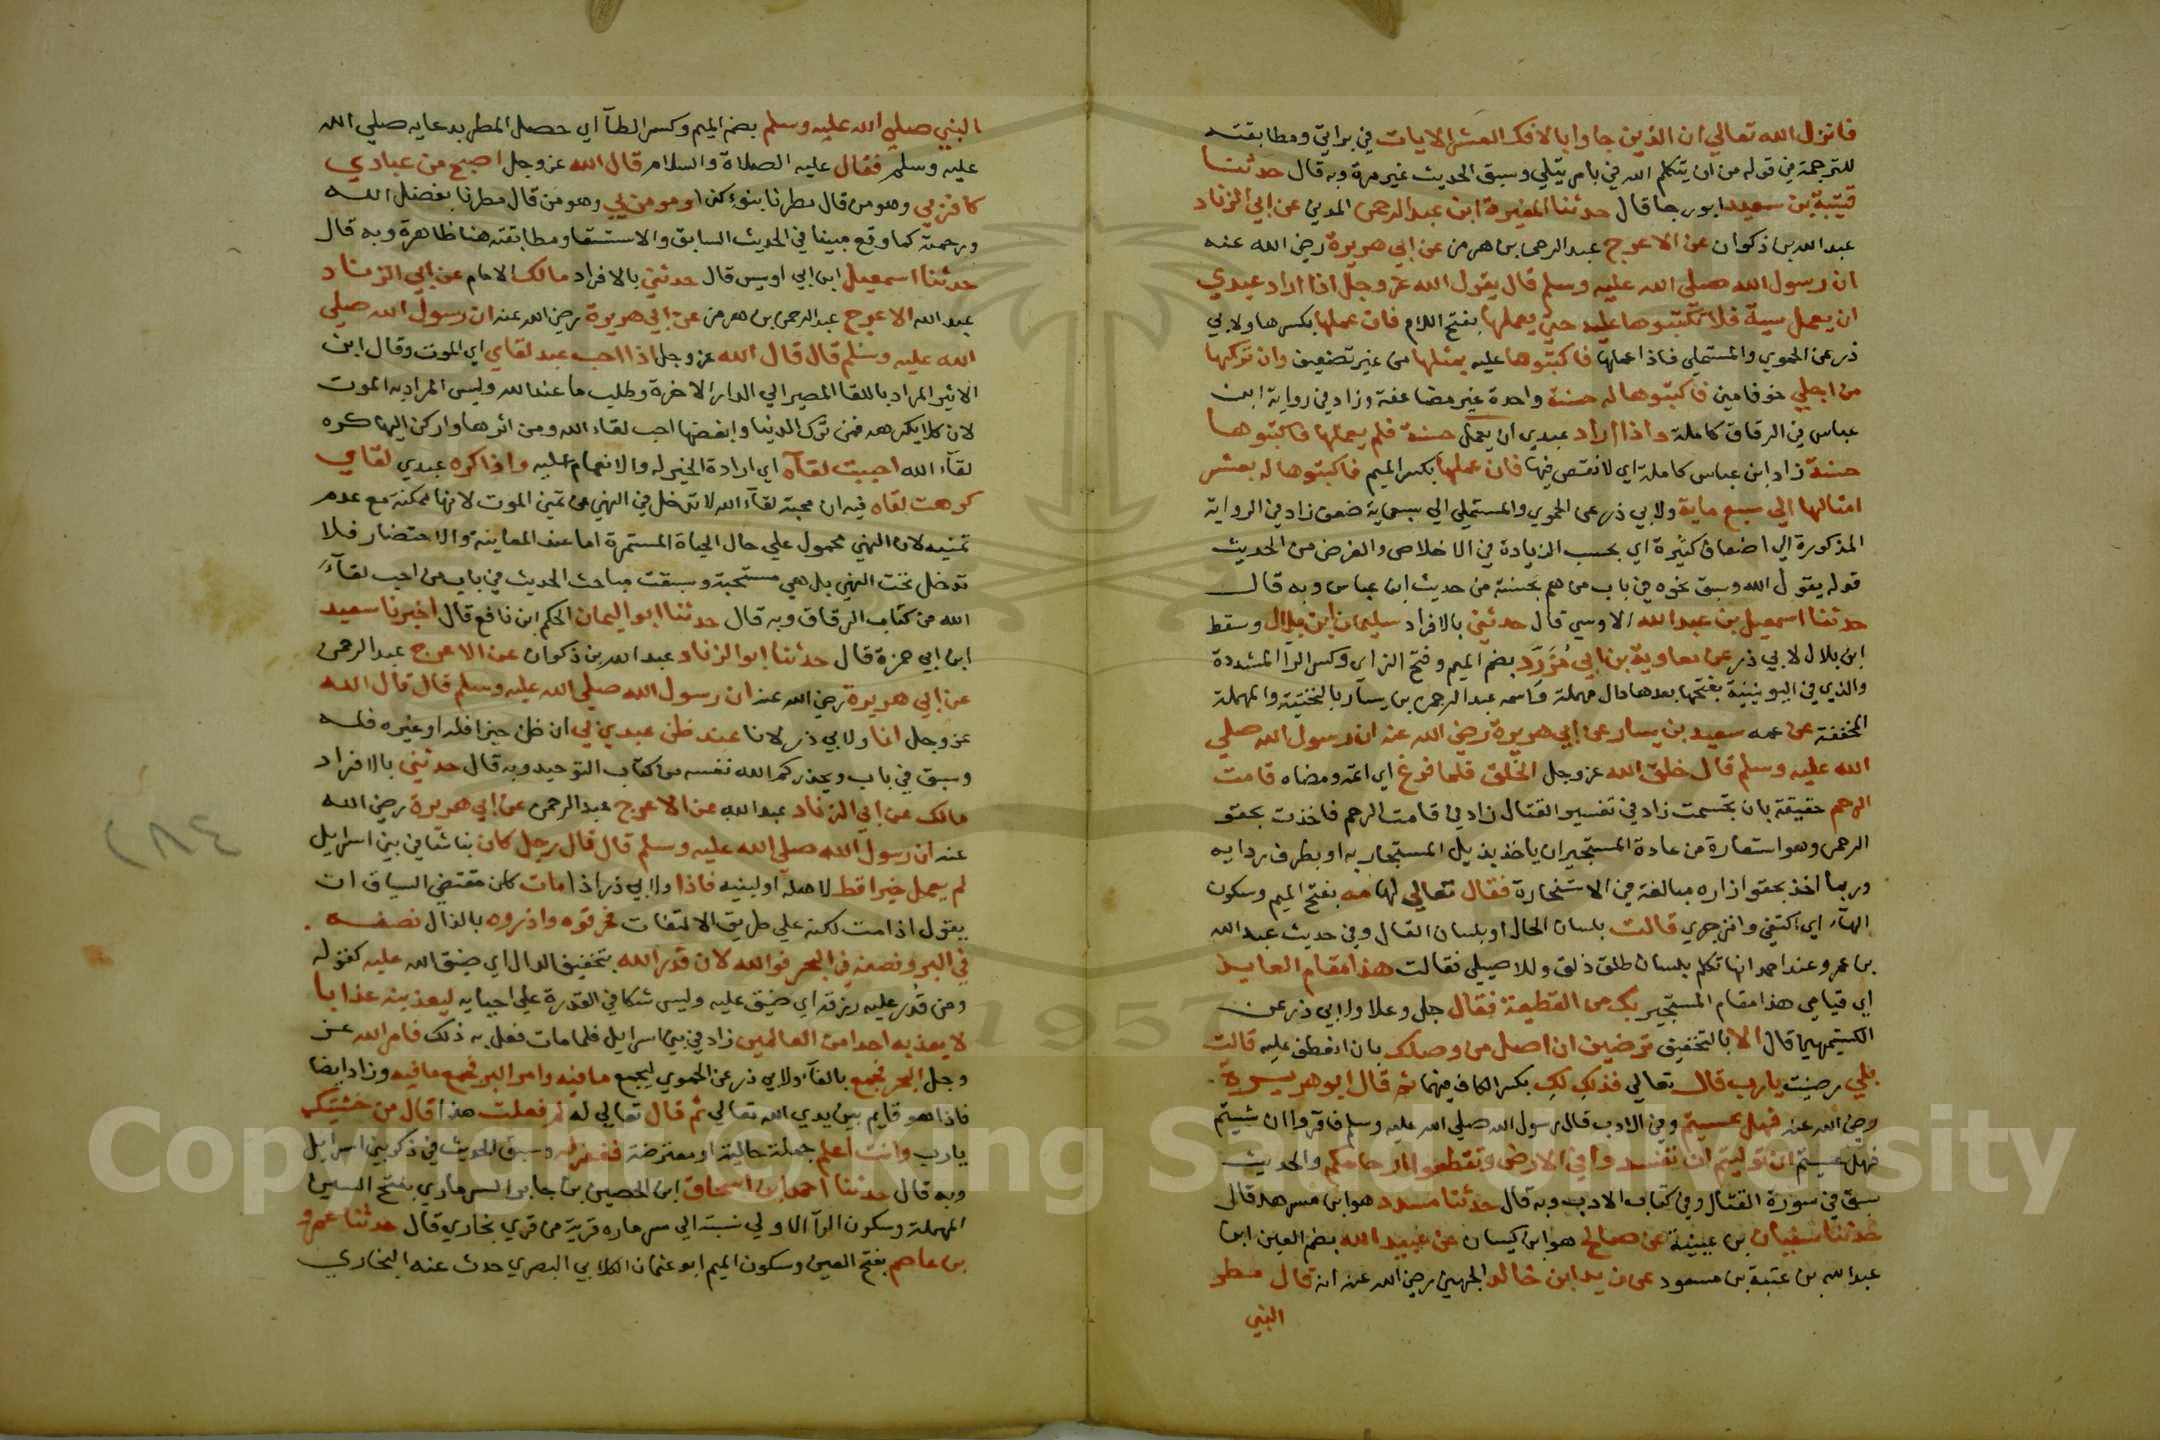 فانزل الله تعالي ان الذين جاوا بالافك العشر الايات في براتي ومطابقته
للترجمة في قوله من ان يتكلم الله في بامر يتلي وسبق الحديث غير مرة وبه قال حدثنا
قتيبة بن سعيد ابورجا قال حدثنا المغيرة ابن عبد الرحمن المديني عن ابي الزناد
عبد الله بن ذكوان عن الاعرج عبد الرحمن بن هرمز عن ابي هريرة رضي الله عنه
ان رسول الله صلي الله عليه وسلم قال يقول الله عز وجل اذا اراد عبدي
ان يعمل سية فلا تكتبوها عليه حتي يعملها بفتح اللام فان عملها بكسرها ولابي
ذر عن الحموي والمستملي فاذا عملها فاكتبوها عليه بمثلها من غير تضعيف وان تركها
من اجلي خوفا مني فاكتبوها له حسنة واحدة غير مضاعفة وزاد في رواية ابن
عباس في الرقاق كاملة واذا اراد عبدي ان يعمل حسنة فلم يعملها فاكتبوها
حسنة زاد ابن عباس كاملة اي لا نقص فيها فان عملها بكسر الميم فاكتبوها له بعشر
امثالها الي سبع ماية ولابي ذر عن الحموي والمستملي الي سبعماية ضعف زاد في الرواية
المذكورة الي اضعاف كثيرة اي بحسب الزيادة في الاخلاص والغرض من الحديث
قوله يقول الله وسبق نحوه في باب من هم بحسنة من حديث ابن عباس وبه قال
حدثنا اسمعيل بن عبد الله الاوسي قال حدثني بالافراد سليمان ابن بلال وسقط
ابن بلال لابي ذر عن معاوية بن ابي مزرد بضم الميم وفتح الزاي وكسر الرآ المشددة
والذي في اليونينية بفتحها بعدها دال مهملة واسمه عبد الرحمن بن يسار بالتحتية والمهملة
المخففة عن عمه سعيد بن يسار عن ابي هريرة رضي الله عنه ان رسول الله صلي
الله عليه وسلم قال خلق الله عز وجل الخلق فلما فرغ اي اتمه وقضاه قامت
الرحم حقيقة بان تجسمت زاد في تفسير القتال زاد في قامت الرحم فاخذت بحقو
الرحمن وهو استعارة من عادة المستجير ان ياخذ بذيل المستجار به او بطرف ردايه
وربما اخذ بحقو ازاره مبالغة في الاستجارة فقال تعالي لها مه بفتح الميم وسكون
الهآء اي اكتفي وانزجري قالت بلسان الحال او بلسان القال وفي حديث عبد الله
بن عمرو عند احمد انها تكلم بلسان طلق ذلق وللاصيلي فقالت هذا مقام العايذ
اي قيامي هذا مقام المستجير بك من القطيعة فقال جل وعلا ولابي ذر عن
الكشميهني قال الا بالتخفيف ترضين ان اصل من وصلك بان اتعطف عليه قالت
بلي رضيت يارب قال تعالي فذلك لك بكسر الكاف فيهما ثم قال ابو هريرة
رضي الله عنه فهل عسيتم وفي الادب قال رسول الله صلي الله عليه وسلم فاقروا ان شيتم
فهل عسيتم ان توليتم ان تفسدوا في الارض وتقطعوا ارحامكم والحديث
سبق في سورة القتال وفي كتاب الادب وبه قال حدثنا مسدد هو ابن مسرهد قال
حدثنا سفيان بن عيينة عن صالح هو ابن كيسان عن عبيد الله بضم العين ابن
عبد الله بن عتبة بن مسعود عن زيد ابن خالد الجهني رضي الله عنه انه قال مطر
النبي
النبي صلي الله عليه وسلم بضم الميم وكسر الطآ اي حصل المطر بدعايه صلي الله
عليه وسلم فقال عليه الصلاة والسلام قال الله عز وجل اصبح من عبادي
كافر بي وهو من قال مطرنا بنوء كذا ومومن بي وهو من قال مطرنا بفضل الله
ورحمته كما وقع مبينا في الحديث السابق والاستسقا ومطابقته هنا ظاهرة وبه قال
حدثنا اسمعيل ابن ابي اويس قال حدثني بالافراد مالك الامام عن ابي الزناد
عبد الله الاعرج عبد الرحمن بن هرمز عن ابي هريرة رضي الله عنه ان رسول الله صلي
الله عليه وسلم قال قال الله عز وجل اذا احب عبد لقاي اي الموت وقال ابن
الاثير المراد باللقا المصير الي الدار الاخرة وطلب ما عند الله وليس المراد به الموت
لان كلا يكرهه فمن ترك الدنيا وابغضها احب لقاء الله ومن اثرها واركن اليها كره
لقآء الله احببت لقآه اي ارادة الخير له والانعام عليه واذا كره عبدي لقاي
كرهت لقاه فيه ان محبة لقآء الله لا تدخل في النهي عن تمني الموت لانها ممكنة مع عدم
تمنيه لان النهي محمول علي حال الحياة المستمرة اما عند المعاينة والاحتضار فلا
تدخل تحت النهي بل هي مستحبة وسبقت مباحث الحديث في باب من احب لقآء
الله من كتاب الرقاق وبه قال حدثنا ابو اليمان الحكم ابن نافع قال اخبرنا سعيد
ابن ابي حمزة قال حدثنا ابو الزناد عبد الله بن ذكوان عن الاعرج عبد الرحمن
عن ابي هريرة رضي الله عنه ان رسول الله صلي الله عليه وسلم قال قال الله
عز وجل انا ولابي ذر لانا عند ظن عبدي بي ان ظن خيرا فله او غيره فله
وسبق في باب ويحذركم الله نفسه من كتاب التوحيد وبه قال حدثني بالافراد
مالك عن ابي الزناد عبد الله عن الاعرج عبد الرحمن عن ابي هريرة رضي الله
عنه ان رسول الله صلي الله عليه وسلم قال قال رجل كان نباشا في بني اسرايل
لم يعمل خيرا قط لاهله او لبنيه فاذا ولابي ذر اذا مات كان مقتضي السياق ان
يقول اذا مت لكنه علي طريق الالتفات فحرقوه واذروه بالذال نصفه
في البر ونصفه في البحر فوالله لان قدر الله بتخفيف الدال اي ضيق الله عليه كقوله
ومن قدر عليه رزقه اي ضيق عليه وليس شكا في القدرة علي احيايه ليعذبنه عذابا
لا يعذبه احدا من العالمين زاد في بني اسرايل فلما مات فعل به ذلك فامر الله عز
وجل البحر فجمع بالفآء ولابي ذر عن الحموي ليجمع ما فيه وامر البر فجمع ما فيه وزاد ايضا
فاذا هو قايم بين يدي الله تعالي ثم قال تعالي له لم فعلت هذا قال من خشيتك
يارب وانت اعلم جملة حالية او معترضة فغفر له وسبق الحديث في ذكر بني اسرايل
وبه قال حدثنا احمد ابن اسحاق ابن الحصين بن جابر السرماري بفتح السين
المهملة وسكون الرآ الاولي نسبة الي سرماره قرية من قري بخاري قال حدثنا عمرو
بن عاصم بفتح العين وسكون الميم ابو عثمان الكلابي البصري حدث عنه البخاري
٢٨٤
1957
Copyright © King Saud University